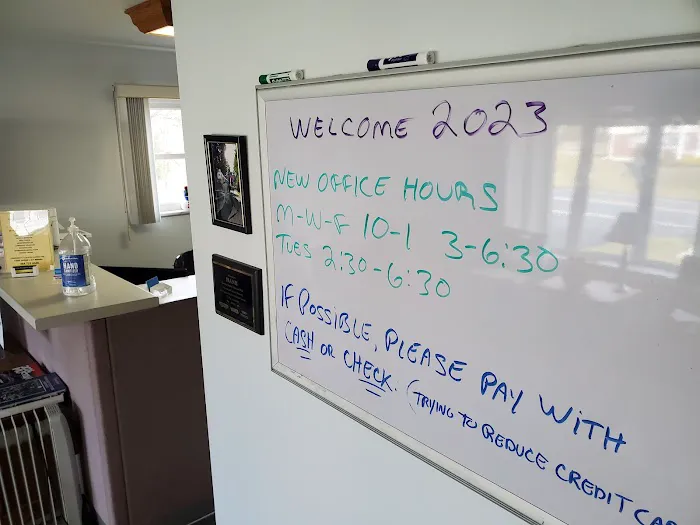 WELCOME 2023
NEW OFFICE HOURS
M-W-F 10-1 3-6:30
TUES 2:30-6:30
IF POSSIBLE, PLEASE PAY WITH
CASH OR CHECK. (TRYING TO REDUCE CREDIT
HAND